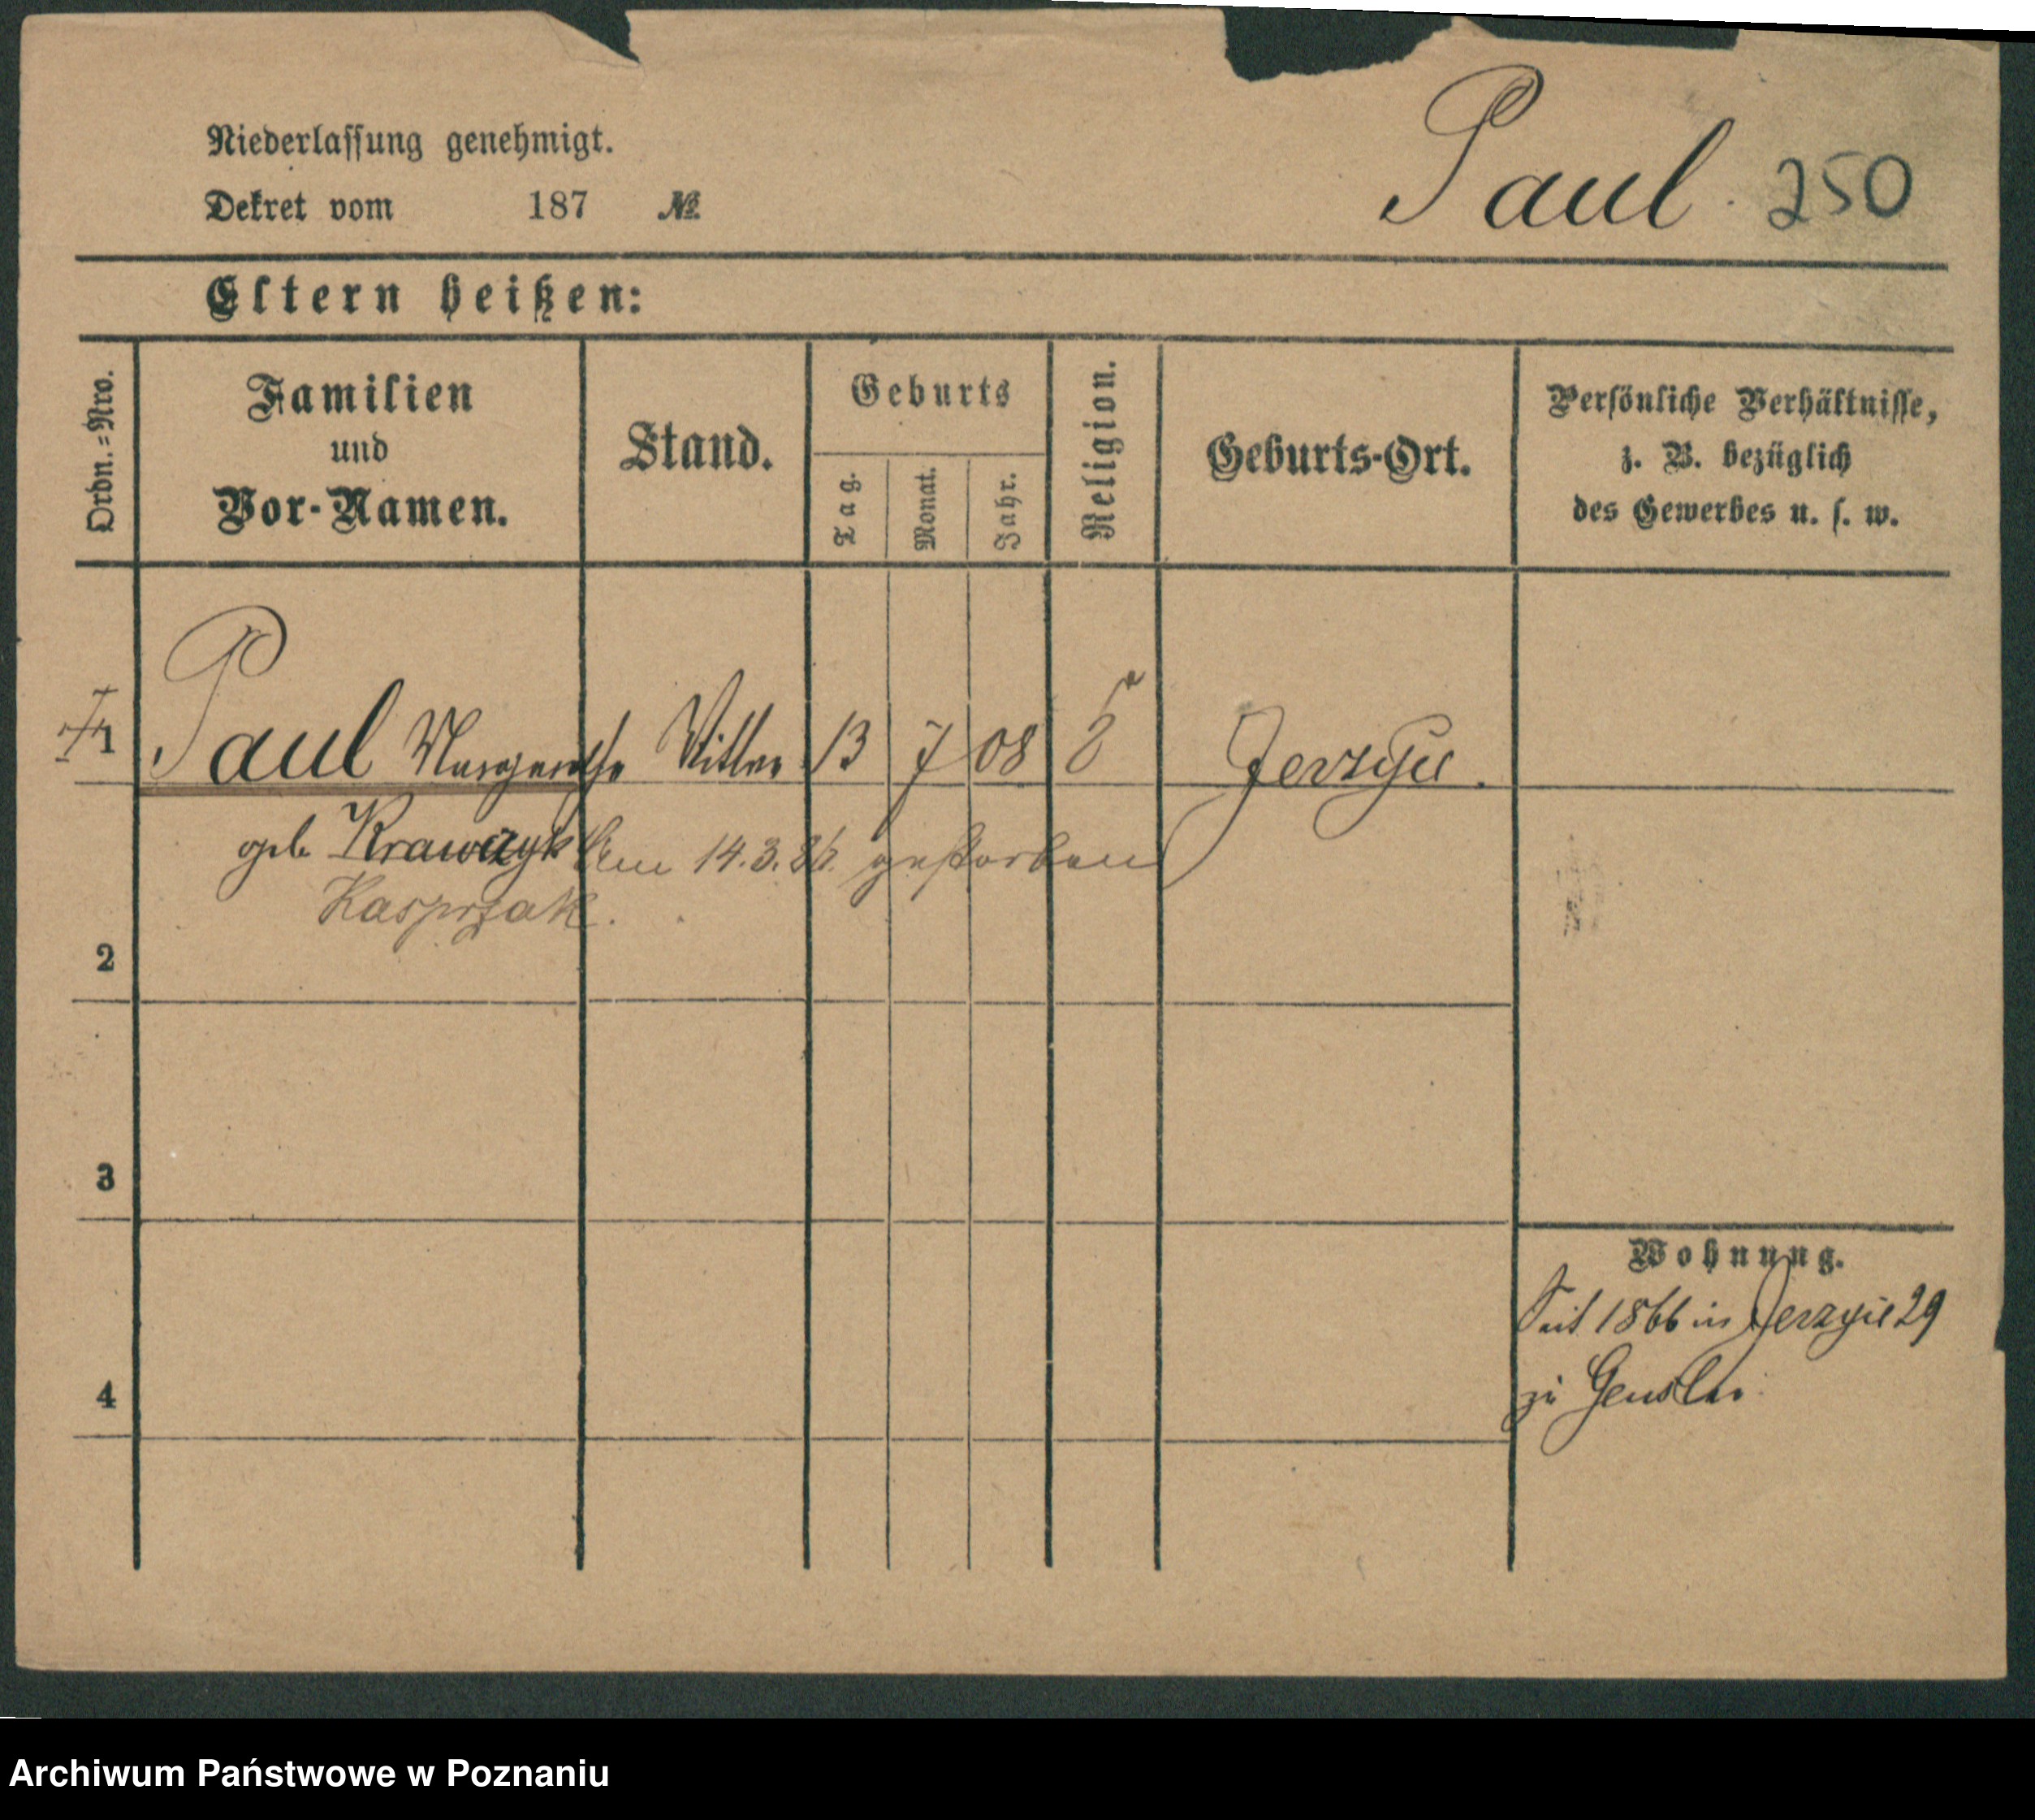 Niederlassung genehmigt.
Dekret vom 187 №
Paul. 250
Eltern heißen:
Ordn.=Nro.
Familien
und
Vor-Namen.
Stand.
Geburts
Tag.
Monat.
Jahr.
Religion.
Geburts-Ort.
Persönliche Verhältnisse,
z. B. bezüglich
des Gewerbes u. s. w.
1 Paul Margarethe 13 7 08 Jerzyce.
geb Krawczyk Am 14.3. gestorben
Kasprzak.
2
3
4
Wohnung.
Seit 1866 in Jerzyce 29
zu
Archiwum Państwowe w Poznaniu